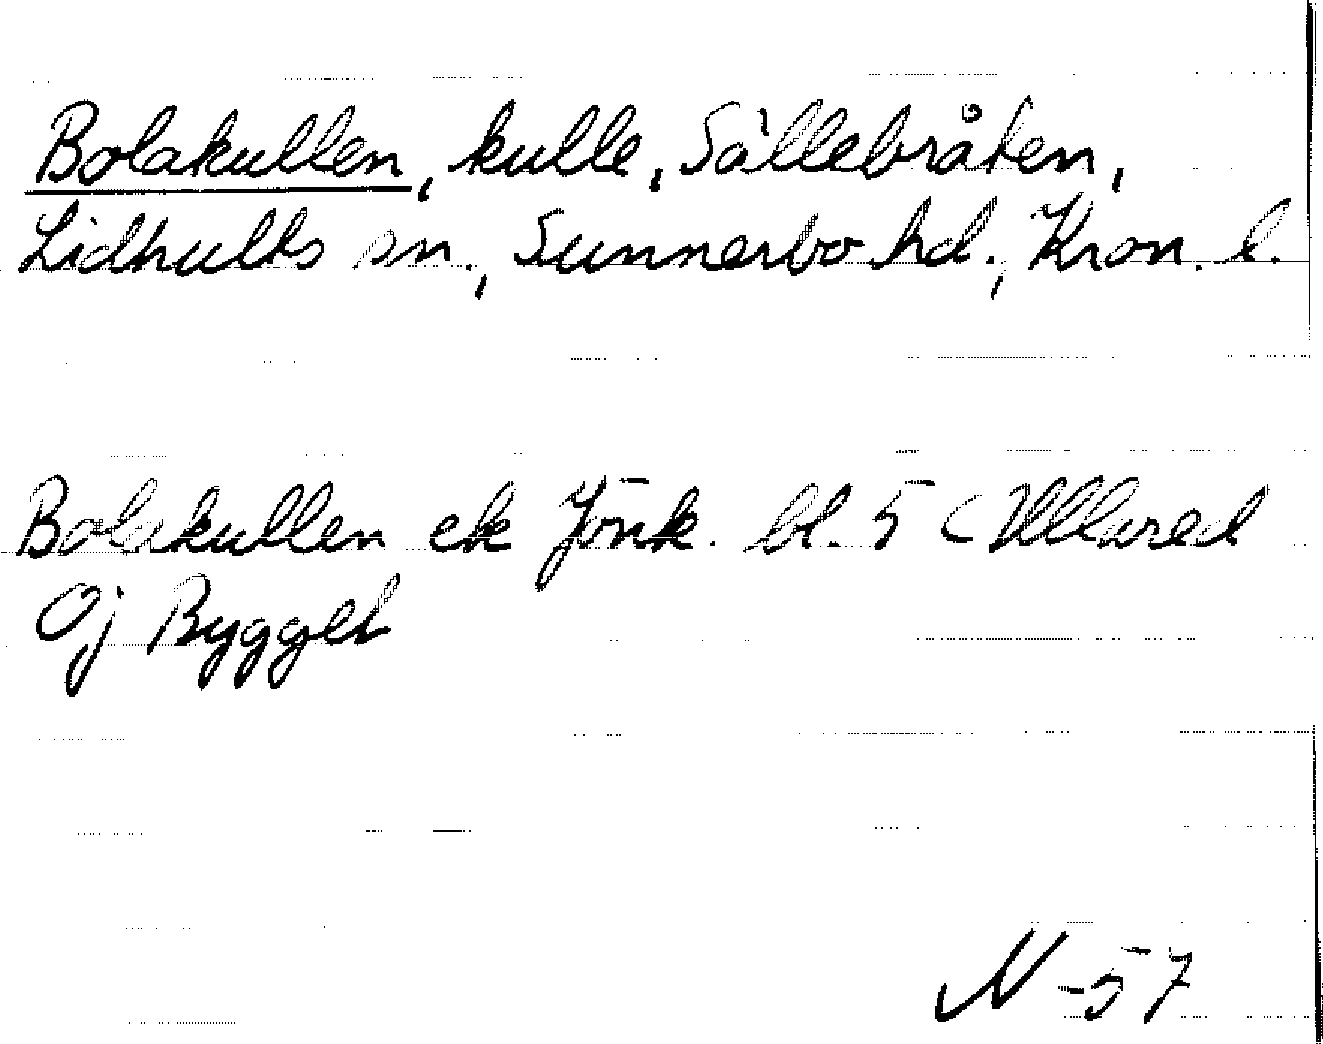 Bolakullen, kulle, Sällebråten,
Lidhults sn., Sunnerbo hd., Kron. l.
Bolakullen ek Jönk. bl. 5 (Ullared
Oj Bygget
N -57